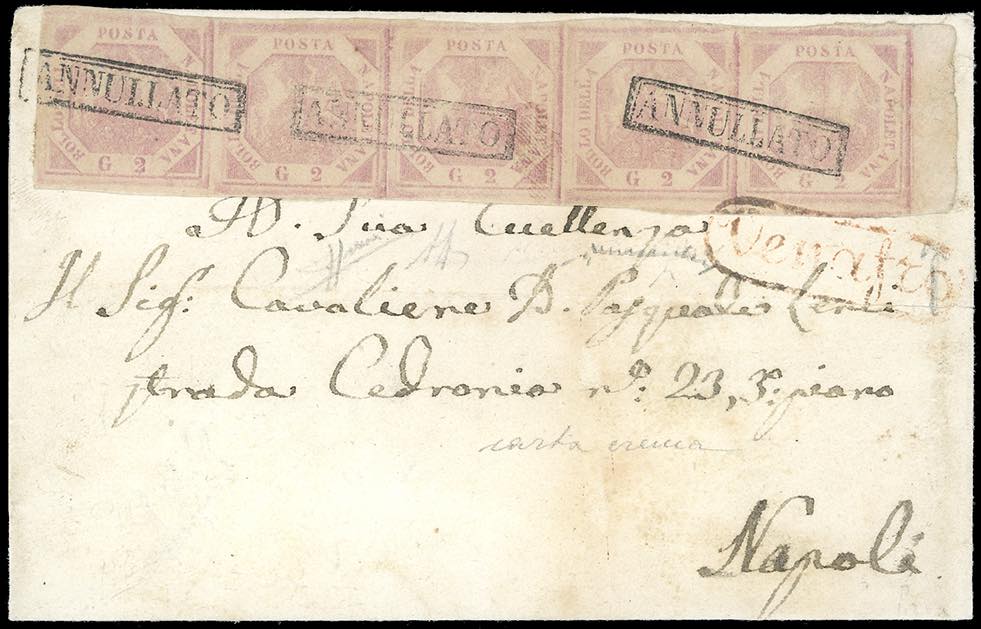 POSTA POSTA POSTA POSTA POSTA
BOLLO DELLA NAPOLETANA BOLLO DELLA NAPOLETANA BOLLO DELLA NAPOLETANA BOLLO DELLA NAPOLETANA BOLLO DELLA NAPOLETANA
ANNULLATO ANNULLATO ANNULLATO
G 2 G 2 G 2 G 2 G 2
A. Sua Eccellenza
Venafro
Il Sig: Cavaliere D. Pasquale
strada Cedronio n°: 23, 3°: piano
carta crema
Napoli